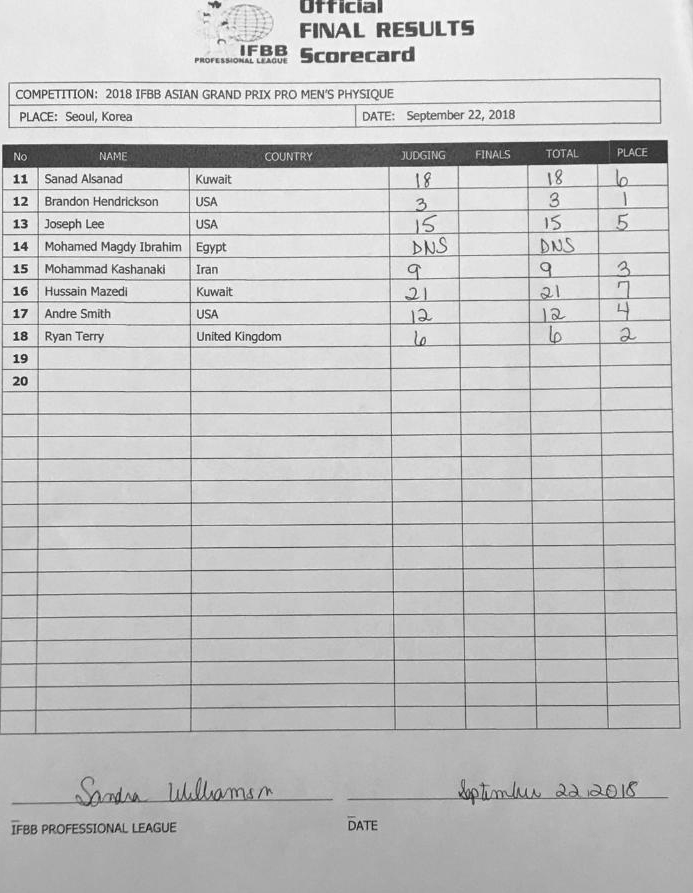 Official
FINAL RESULTS
IFBB Scorecard
PROFESSIONAL LEAGUE
COMPETITION: 2018 IFBB ASIAN GRAND PRIX PRO MEN'S PHYSIQUE
PLACE: Seoul, Korea DATE: September 22, 2018
No NAME COUNTRY JUDGING FINALS TOTAL PLACE
11 Sanad Alsanad Kuwait 18 18 6
12 Brandon Hendrickson USA 3 3 1
13 Joseph Lee USA 15 15 5
14 Mohamed Magdy Ibrahim Egypt DNS DNS
15 Mohammad Kashanaki Iran 9 9 3
16 Hussain Mazedi Kuwait 21 21 7
17 Andre Smith USA 12 12 4
18 Ryan Terry United Kingdom 6 6 2
19
20
Sandra Williamson September 22 2018
IFBB PROFESSIONAL LEAGUE DATE